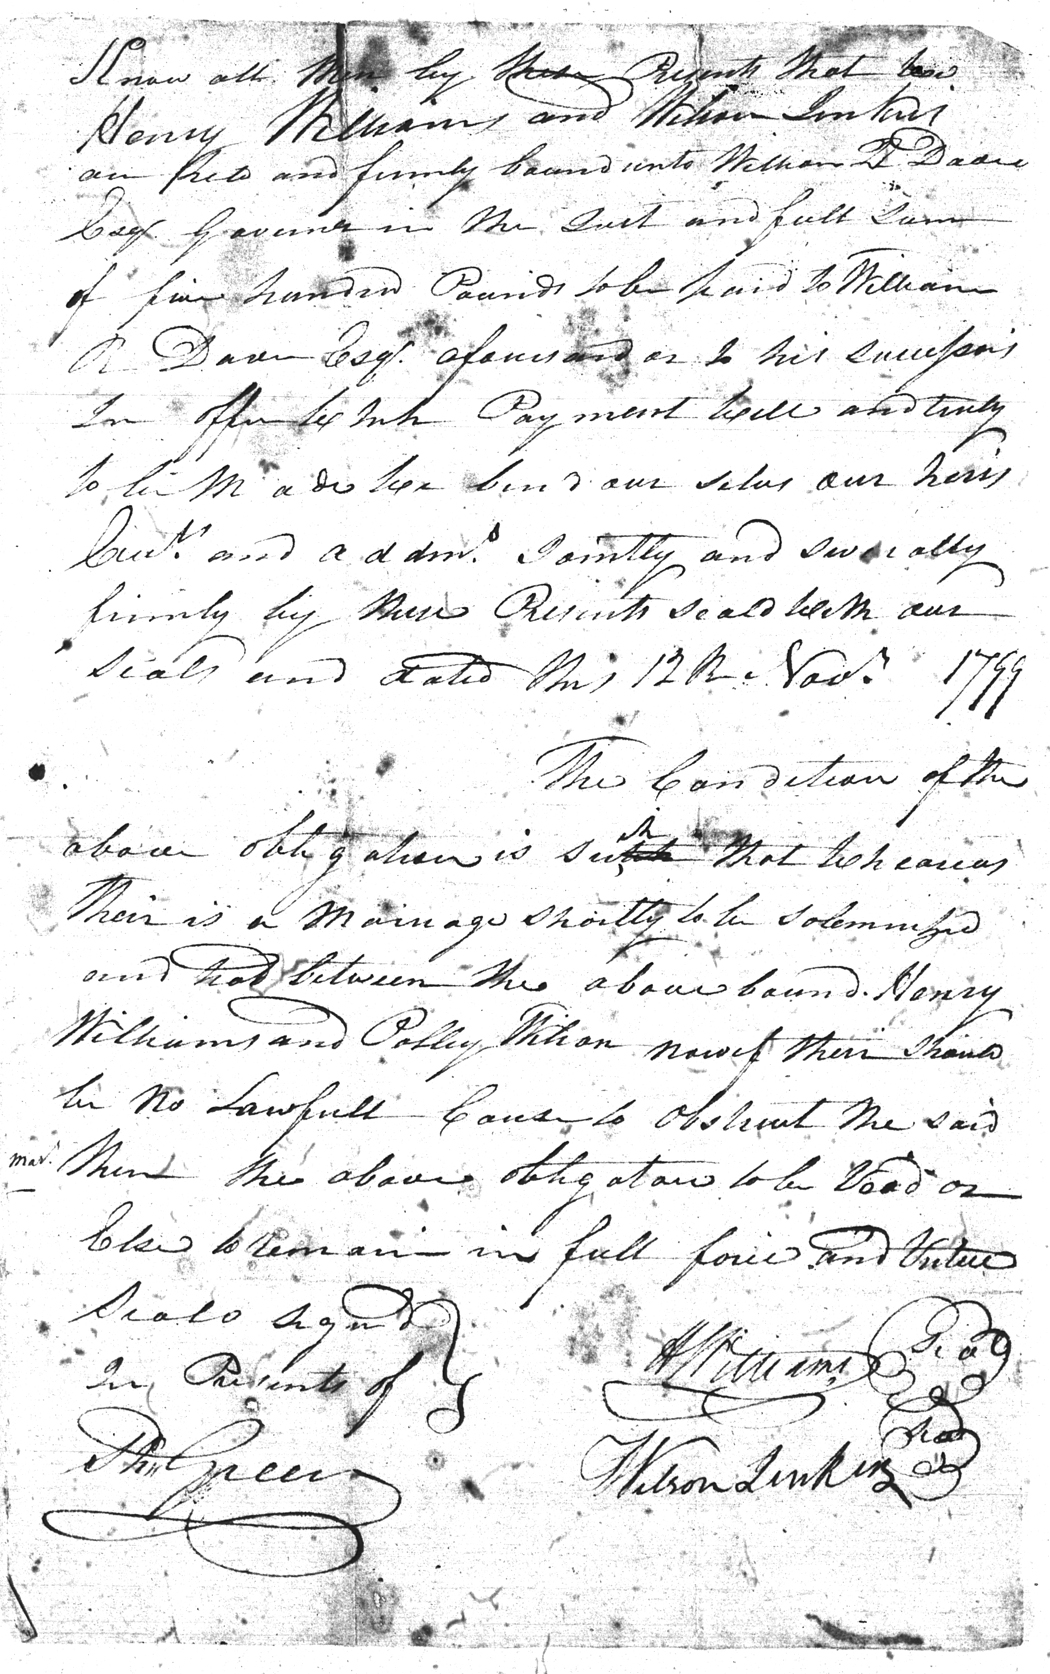 Know all Men by these Presents that we
Henry Williams and Wilson Jenkins
are held and firmly bound unto William R Davie
Esqr Governer in the Just and full Sum
of five hundred Pounds to be paid to William
R Davie Esqr. aforesaid or to his successors
In office Which Payment well and truly
to be Made we bind our selves our heirs
Exetr. and addmr. Jointly and severally
firmly by these Presents seald with our
Seals and dated this 12th Novr. 1799
The Condition of the
above obligation is such that Wheareas
their is a Marriage shortly to be solemnized
and had between the above bound Henry
Williams and Polley Wilson now if their should
be No Lawfull Cause to obstruct the said
mar. then the above obligation to be Void or
Else to remain in full force and Virtue
Seald signd
In Presents of
H Williams Seal
Wilson Jenkins Seal
Thos Green